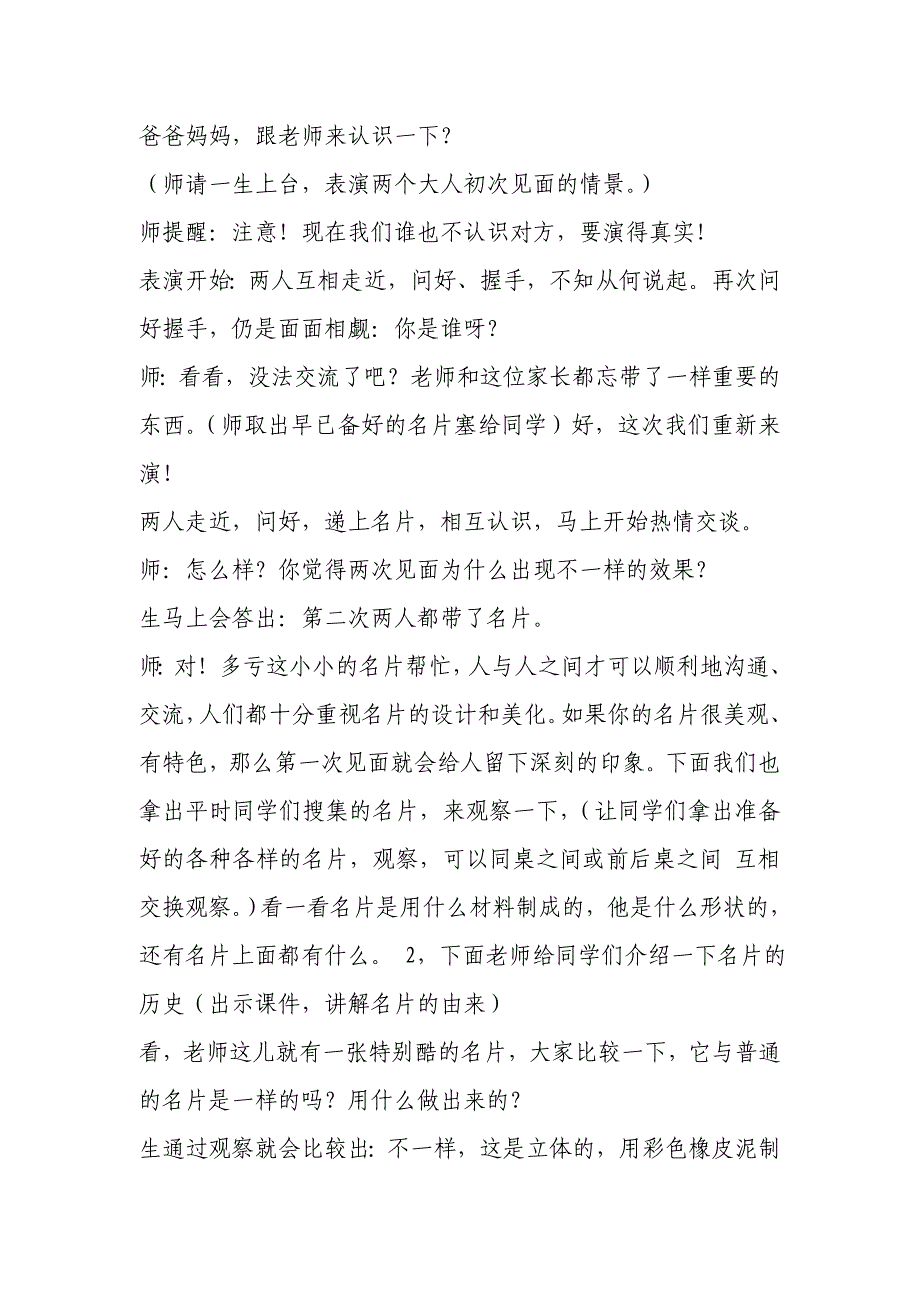 爸爸妈妈，跟老师来认识一下？
（师请一生上台，表演两个大人初次见面的情景。）
师提醒：注意！现在我们谁也不认识对方，要演得真实！
表演开始：两人互相走近，问好、握手，不知从何说起。再次问
好握手，仍是面面相觑：你是谁呀？
师：看看，没法交流了吧？老师和这位家长都忘带了一样重要的
东西。（师取出早已备好的名片塞给同学）好，这次我们重新来
演！
两人走近，问好，递上名片，相互认识，马上开始热情交谈。
师：怎么样？你觉得两次见面为什么出现不一样的效果？
生马上会答出：第二次两人都带了名片。
师：对！多亏这小小的名片帮忙，人与人之间才可以顺利地沟通、
交流，人们都十分重视名片的设计和美化。如果你的名片很美观、
有特色，那么第一次见面就会给人留下深刻的印象。下面我们也
拿出平时同学们搜集的名片，来观察一下，（让同学们拿出准备
好的各种各样的名片，观察，可以同桌之间或前后桌之间 互相
交换观察。）看一看名片是用什么材料制成的，他是什么形状的，
还有名片上面都有什么。 2，下面老师给同学们介绍一下名片的
历史（出示课件，讲解名片的由来）
看，老师这儿就有一张特别酷的名片，大家比较一下，它与普通
的名片是一样的吗？用什么做出来的？
生通过观察就会比较出：不一样，这是立体的，用彩色橡皮泥制